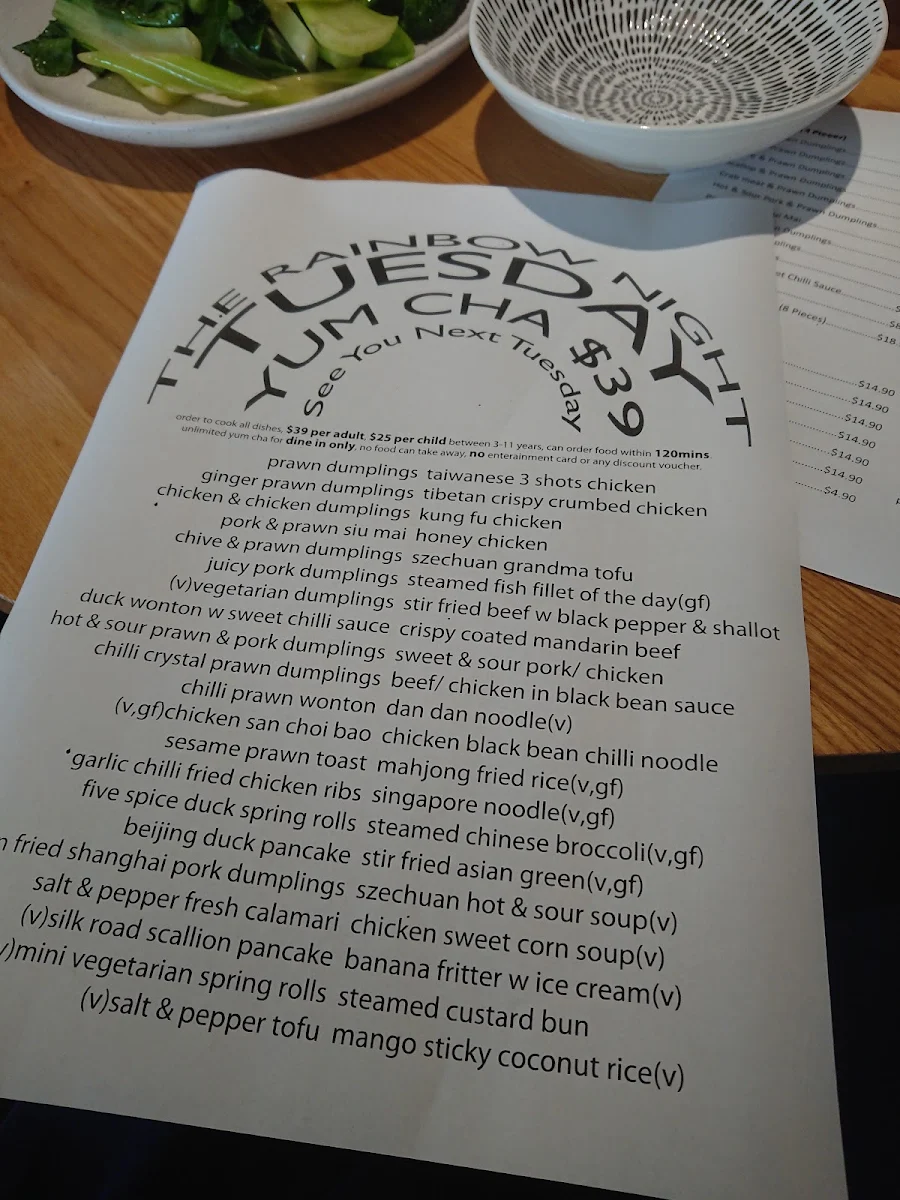 THE RAINBOW NIGHT
TUESDAY
YUM CHA $39
See You Next Tuesday
order to cook all dishes, $39 per adult, $25 per child between 3-11 years, can order food within 120mins.
unlimited yum cha for dine in only, no food can take away, no enterainment card or any discount voucher.
prawn dumplings taiwanese 3 shots chicken
ginger prawn dumplings tibetan crispy crumbed chicken
chicken & chicken dumplings kung fu chicken
pork & prawn siu mai honey chicken
chive & prawn dumplings szechuan grandma tofu
juicy pork dumplings steamed fish fillet of the day(gf)
(v)vegetarian dumplings stir fried beef w black pepper & shallot
duck wonton w sweet chilli sauce crispy coated mandarin beef
hot & sour prawn & pork dumplings sweet & sour pork/ chicken
chilli crystal prawn dumplings beef/ chicken in black bean sauce
chilli prawn wonton dan dan noodle(v)
(v,gf)chicken san choi bao chicken black bean chilli noodle
sesame prawn toast mahjong fried rice(v,gf)
garlic chilli fried chicken ribs singapore noodle(v,gf)
five spice duck spring rolls steamed chinese broccoli(v,gf)
beijing duck pancake stir fried asian green(v,gf)
fried shanghai pork dumplings szechuan hot & sour soup(v)
salt & pepper fresh calamari chicken sweet corn soup(v)
(v)silk road scallion pancake banana fritter w ice cream(v)
v)mini vegetarian spring rolls steamed custard bun
(v)salt & pepper tofu mango sticky coconut rice(v)
Dumplings
& Prawn Dumplings
& Prawn Dumplings
Crab Meat & Prawn Dumplings
Hot & Sour Pork & Prawn Dumplings
Mai
Dumplings
Chilli Sauce
(8 Pieces) $18.
$14.90
$14.90
$14.90
$14.90
$14.90
$14.90
$4.90